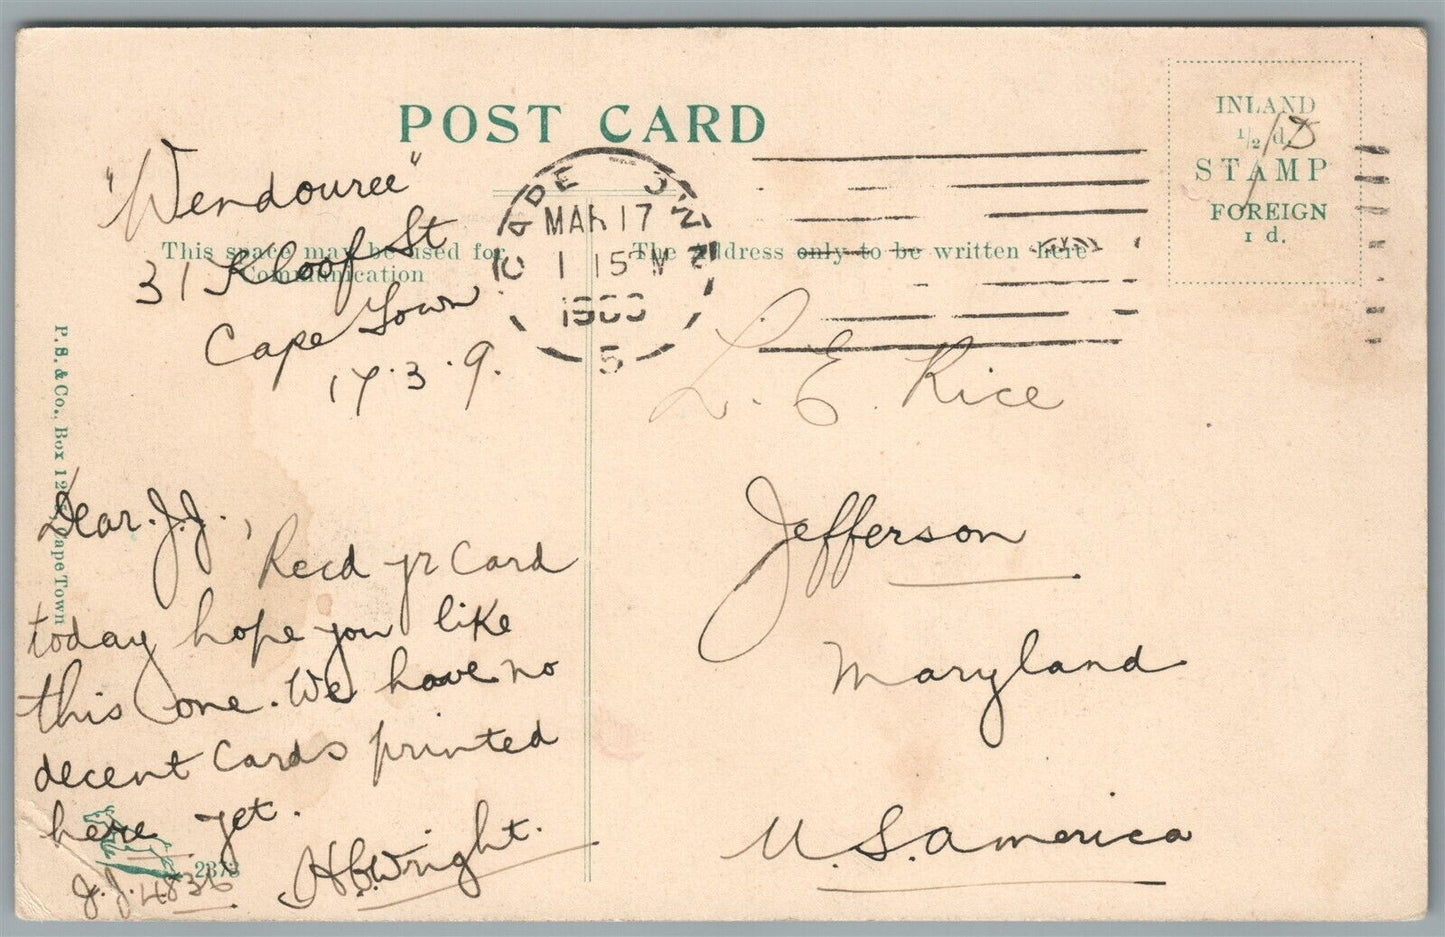 POST CARD
INLAND
½ d.
STAMP
FOREIGN
1 d.
1/D
This space may be used for
Communication
The address only to be written here
"Wendouree"
31 Kloof St
Cape Town
17.3.9.
CAPE
MAR 17
1 15 PM
5
L. E. Rice
Jefferson
Maryland
U.S. America
Dear J.J.,
Recd yr card
today hope you like
this one. We have no
decent cards printed
here yet.
H.B. Wright.
J.J. 4836
2373
P. S. & Co., Box Cape Town